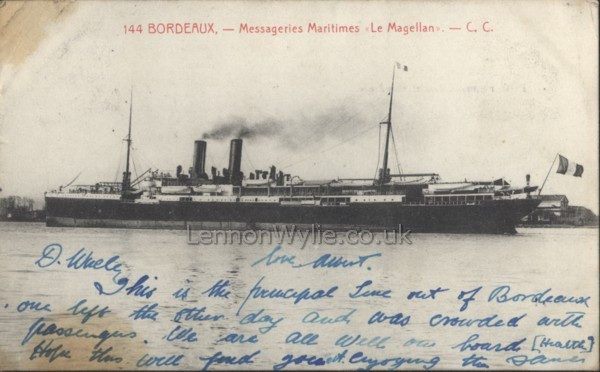 144 BORDEAUX, — Messageries Maritimes «Le Magellan». — C. C.
LennonWylie.co.uk
love Albert.
This is the principal Line out of Bordeaux
one left the other day and was crowded with
passengers. We are all well on board [Health]
Hope this will find you enjoying the same